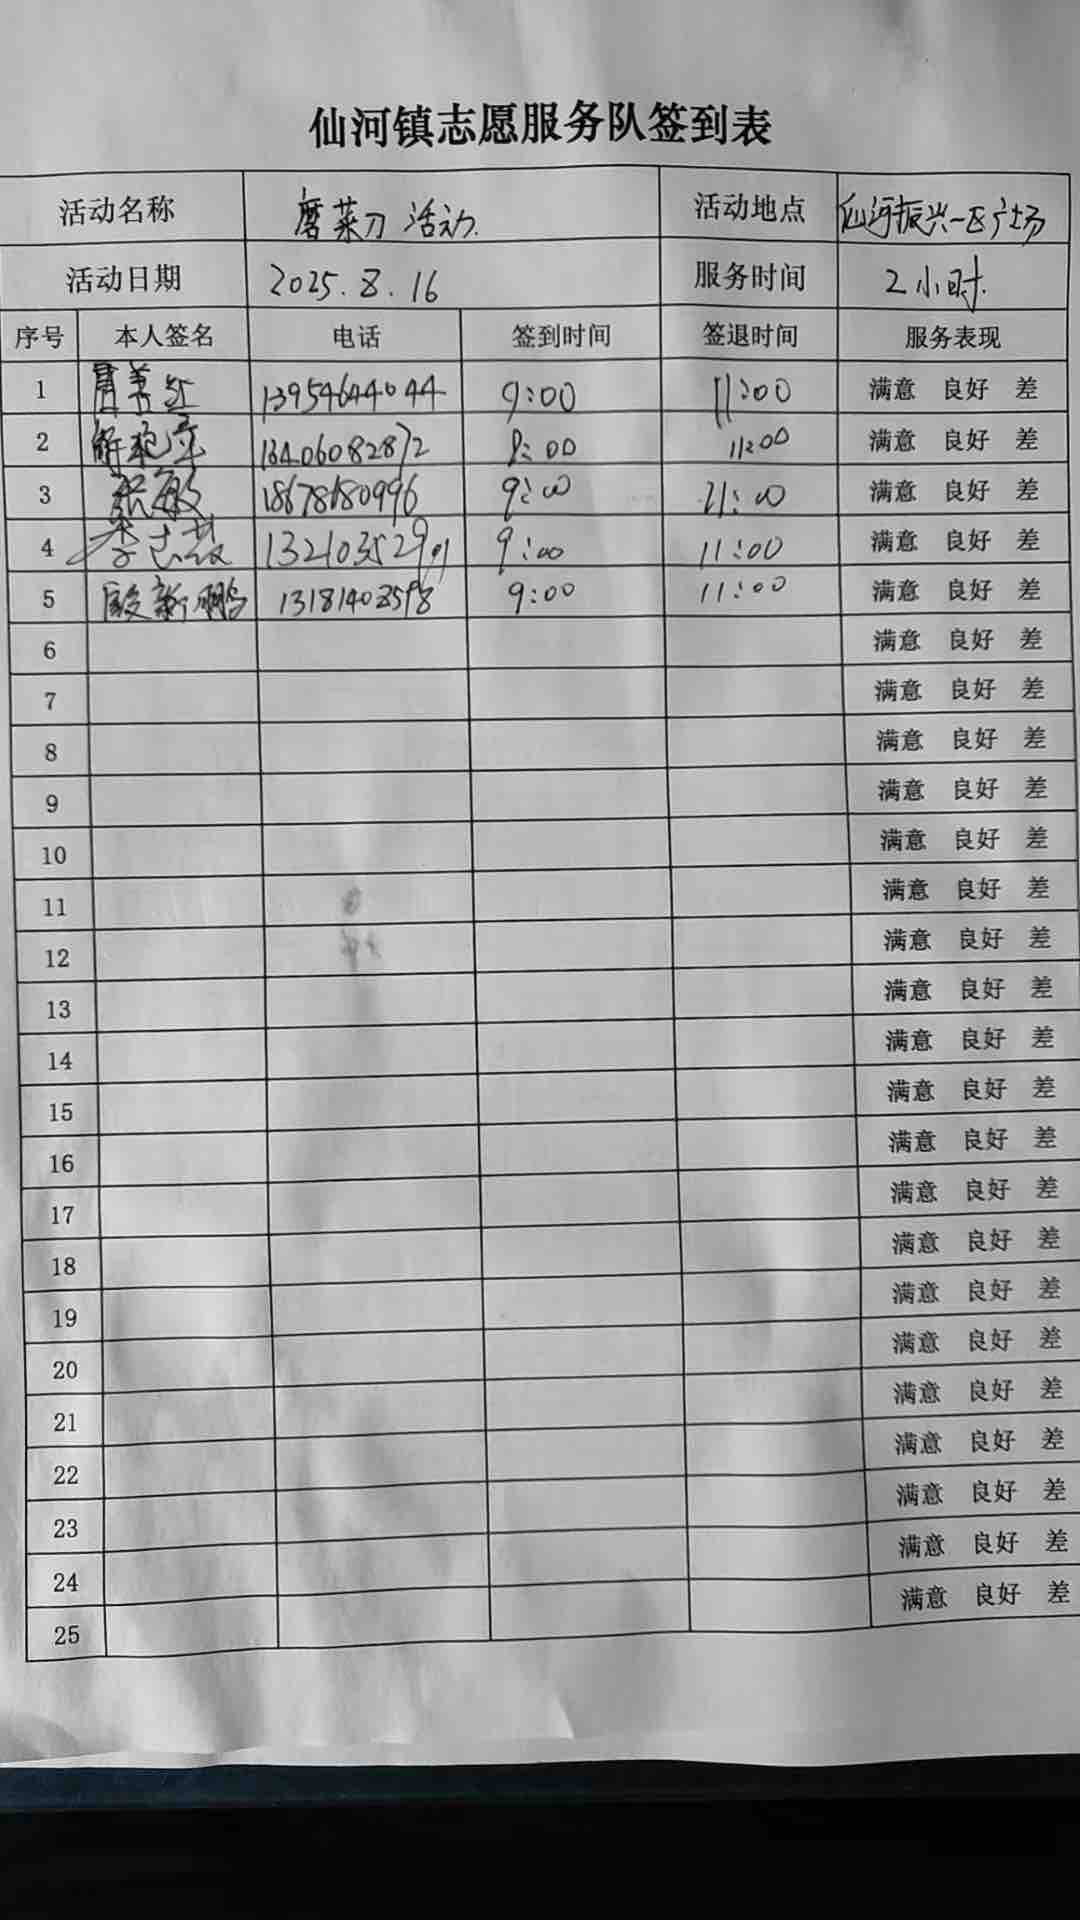 仙河镇志愿服务队签到表
活动名称 磨菜刀活动. 活动地点 仙河振兴一区广场
活动日期 2025.8.16 服务时间 2小时.
序号 本人签名 电话 签到时间 签退时间 服务表现
1 13954644044 9:00 11:00 满意 良好 差
2 13406082872 9:00 11:00 满意 良好 差
3 张敏 18678180996 9:00 11:00 满意 良好 差
4 李志益 9:00 11:00 满意 良好 差
5 殷新鹏 9:00 11:00 满意 良好 差
6 满意 良好 差
7 满意 良好 差
8 满意 良好 差
9 满意 良好 差
10 满意 良好 差
11 满意 良好 差
12 满意 良好 差
13 满意 良好 差
14 满意 良好 差
15 满意 良好 差
16 满意 良好 差
17 满意 良好 差
18 满意 良好 差
19 满意 良好 差
20 满意 良好 差
21 满意 良好 差
22 满意 良好 差
23 满意 良好 差
24 满意 良好 差
25 满意 良好 差